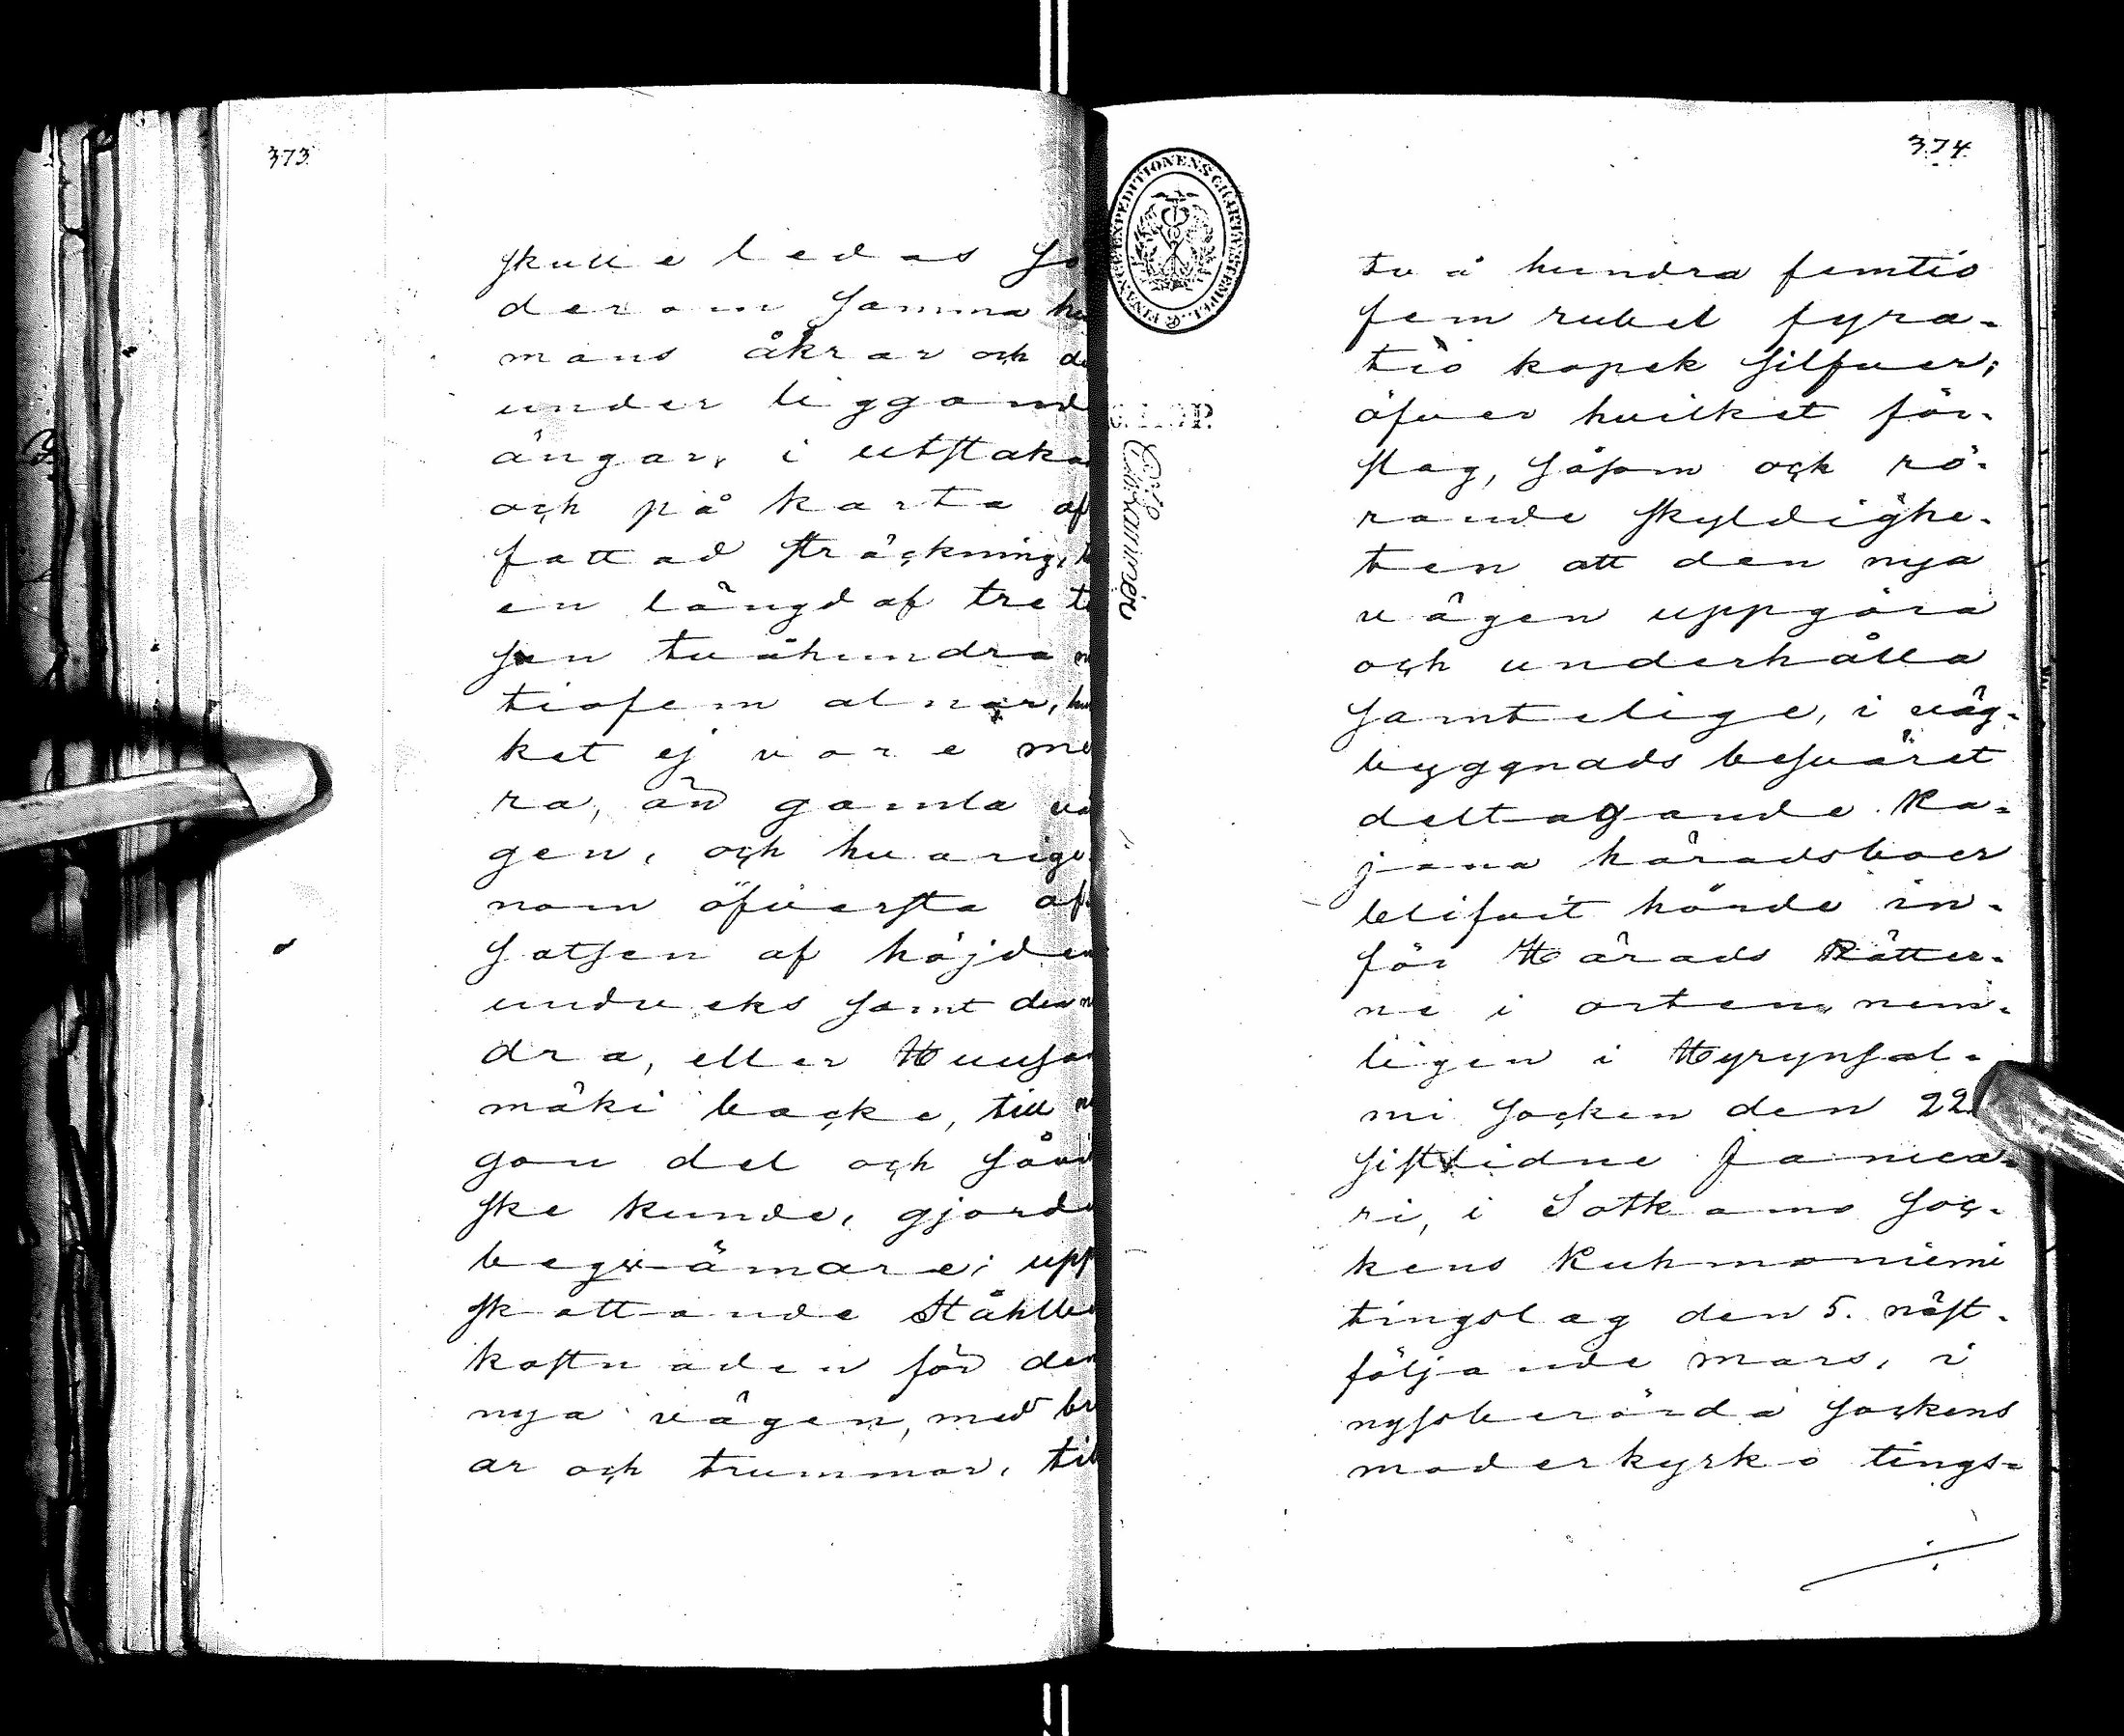 373
skulle ledas sö
derom samma he
mans åkrar och de
under liggand
ängar, i utstaka
och på karta af
fattad sträckning, t
en längd af tre tu
sen tvåhundra n
tiofem alnar, hvi
ket ej vore me
ra, än gamla vä
gen, och hvarige
nom öfversta af
satsen af höjden
undveks samt den n
dra, eller Huuson
mäki backe, till nå
gon del och såvi
ske kunde, gjorde
beqvämare; upp
skattande Ståhlbe
kostnaden för den
nya vägen, med br
ar och trummor, til
374
FINANCE EXPEDITIONENS CHARTÆ STEMPEL
KOP.
två hundra femtio
fem rubel fyra-
tio kopek silfver;
öfver hvilket för-
slag, såsom och rö-
rande skyldighe-
ten att den nya
vägen uppgöra
och underhålla
samtelige, i väg-
byggnads besväret
deltagande Ka-
jana häradsboer
blifvit hörde in-
för Härads Rätter-
ne i orten, nem-
ligen i Hyrynsal-
mi socken den 22
sistlidne Janua-
ri, i Sotkamo Soc-
kens Kuhmoniemi
tingslag den 5. näst-
följande mars, i
nyssberörda sockens
moderkyrko tings-